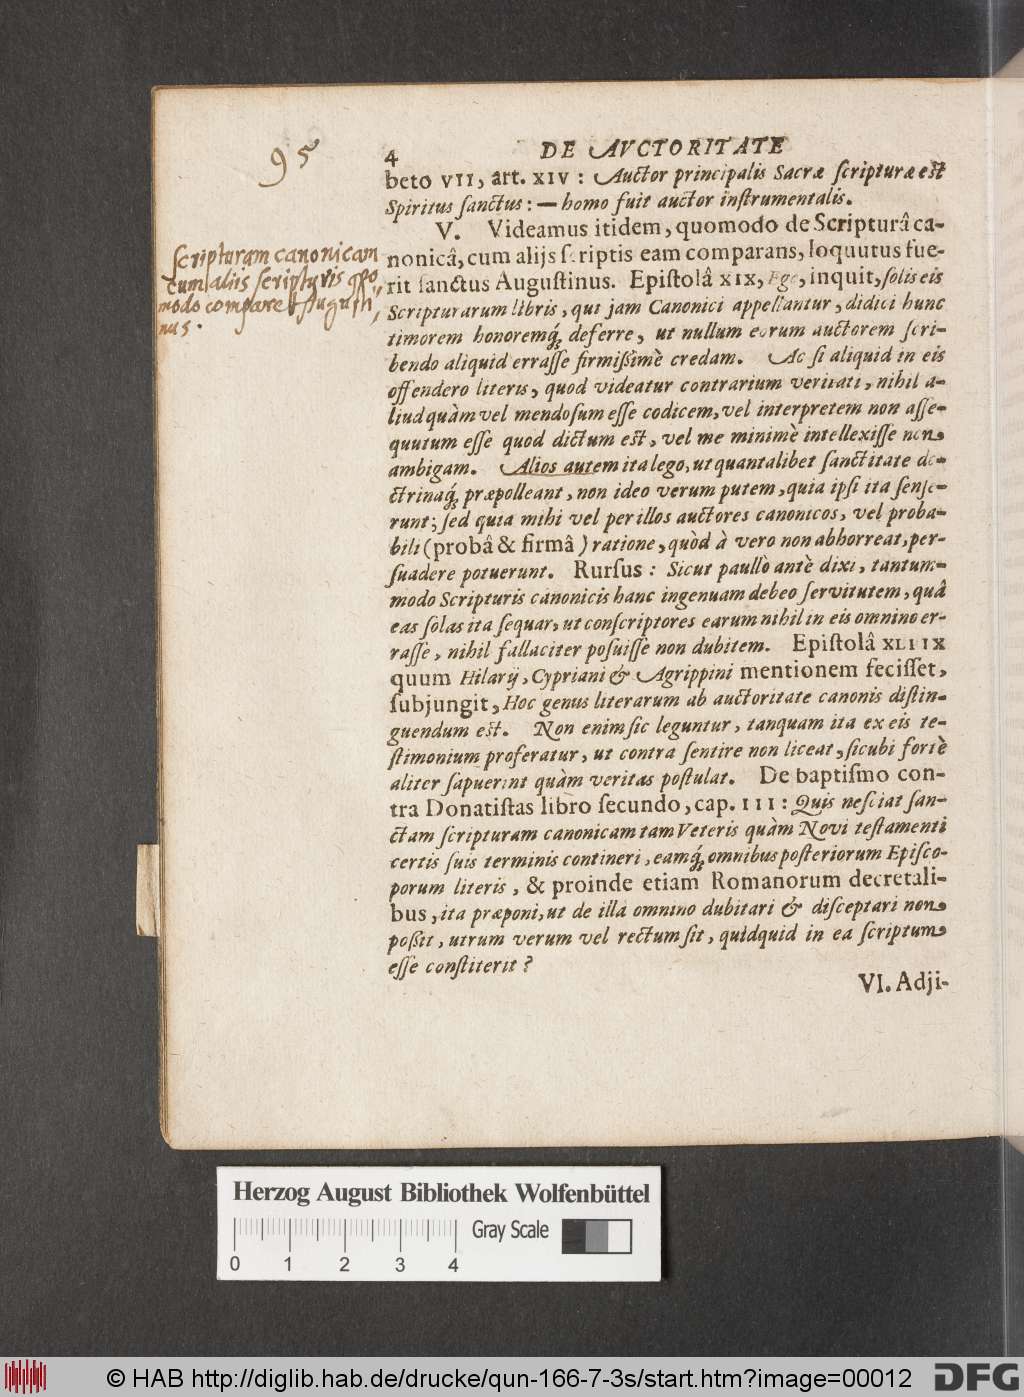 95
4
DE AVCTORITATE
beto VII, art. XIV: Auctor principalis Sacræ ſcripturæ est
Spiritus ſanctus: — homo fuit auctor inſtrumentalis.
V. Videamus itidem, quomodo de Scripturâ ca-
nonicâ, cum alijs ſcriptis eam comparans, loquutus fue-
rit ſanctus Auguſtinus. Epiſtolâ XIX, Ego, inquit, ſolis eis
Scripturarum libris, qui jam Canonici appellantur, didici hunc
timorem honoremq́; deferre, ut nullum eorum auctorem ſcri-
bendo aliquid erraſſe firmißimè credam. Ac ſi aliquid in eis
offendero literis, quod videatur contrarium veritati, nihil a-
liud quàm vel mendoſum eſſe codicem, vel interpretem non aſſe-
quutum eſſe quod dictum est, vel me minimè intellexiſſe non
ambigam. Alios autem ita lego, ut quantalibet ſanctitate do-
ctrinaq́; præpolleant, non ideo verum putem, quia ipſi ita ſenſe-
runt; ſed quia mihi vel per illos auctores canonicos, vel proba-
bili (probâ & firmâ) ratione, quòd à vero non abhorreat, per-
ſuadere potuerunt. Rurſus: Sicut paullò antè dixi, tantum-
modo Scripturis canonicis hanc ingenuam debeo ſervitutem, quâ
eas ſolas ita ſequar, ut conſcriptores earum nihil in eis omnino er-
raſſe, nihil fallaciter poſuiſſe non dubitem. Epiſtolâ XLIIX
quum Hilarij, Cypriani & Agrippini mentionem feciſſet,
ſubjungit, Hoc genus literarum ab auctoritate canonis diſtin-
guendum est. Non enim ſic leguntur, tanquam ita ex eis te-
ſtimonium proferatur, ut contra ſentire non liceat, ſicubi fortè
aliter ſapuerint quàm veritas poſtulat. De baptiſmo con-
tra Donatiſtas libro ſecundo, cap. III: Quis neſciat ſan-
ctam ſcripturam canonicam tam Veteris quàm Novi teſtamenti
certis ſuis terminis contineri, eamq́; omnibus poſteriorum Epiſco-
porum literis, & proinde etiam Romanorum decretali-
bus, ita præponi, ut de illâ omnino dubitari & diſceptari non
poßit, utrum verum vel rectum ſit, quidquid in ea ſcriptum
eſſe conſtiterit?
VI. Adji-
Scripturam canonicam
cum aliis scripturis quo
modo comparet Augusti
nus.
Herzog August Bibliothek Wolfenbüttel
Gray Scale
0 1 2 3 4
© HAB http://diglib.hab.de/drucke/qun-166-7-3s/start.htm?image=00012
DFG